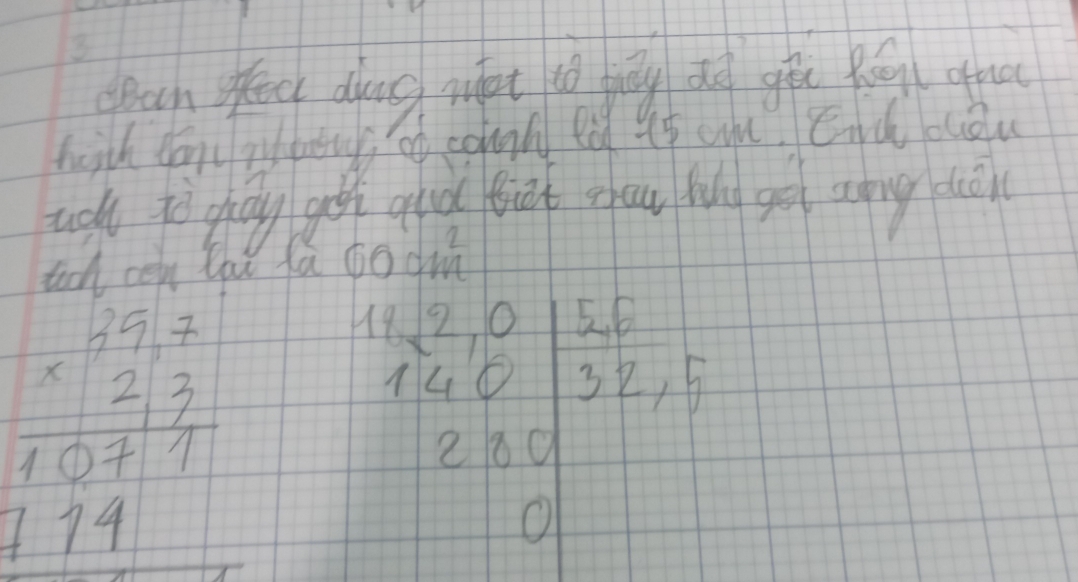 3
Bạn Hoa dùng một tờ giấy để gói hộp quà
hình lập phương có cạnh là 15 cm. Tính diện
tích tờ giấy gói quà biết sau khi gói xong diện
tích còn lại là 60 cm²
35,7 18,2,0 5,6
x 2,3 140 32,5
107 1 280
714 0